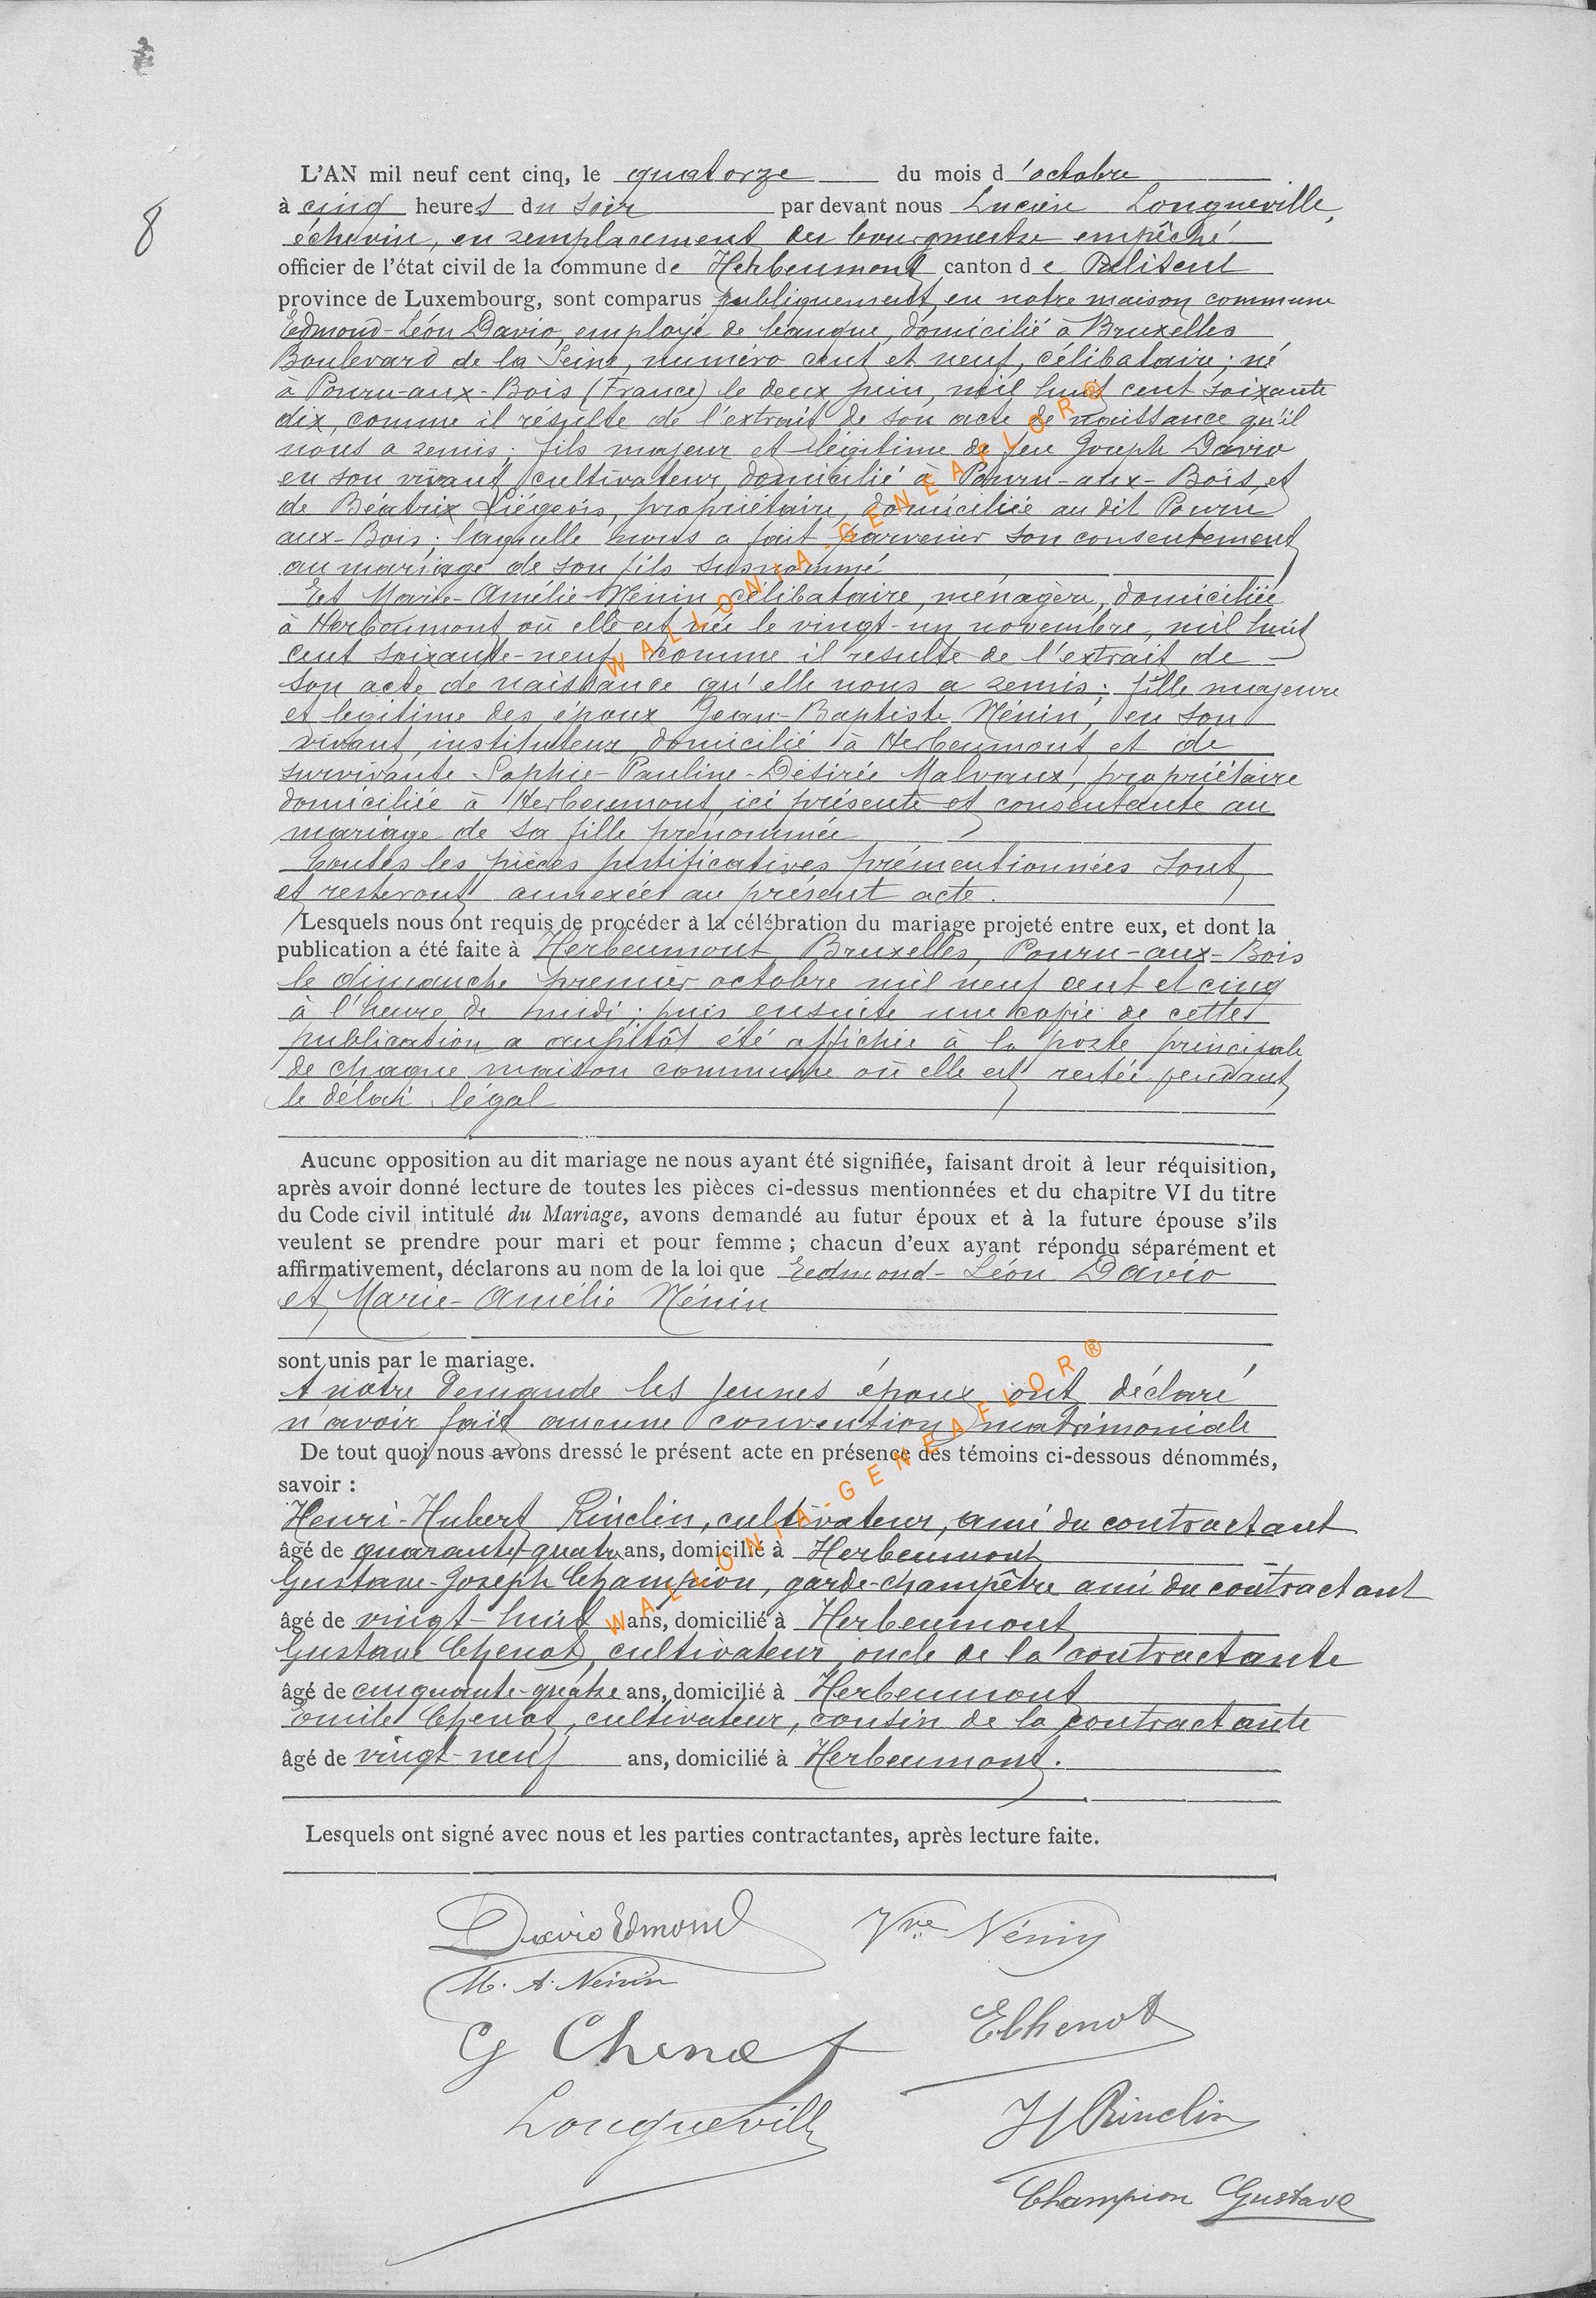 8
L'AN mil neuf cent cinq, le quatorze du mois d'octobre
à cinq heures du soir par devant nous Lucien Longueville,
échevin, en remplacement du bourgmestre empêché
officier de l'état civil de la commune de Herbeumont canton de Paliseul
province de Luxembourg, sont comparus publiquement, en notre maison commune
Edmond-Léon Davio, employé de banque, domicilié à Bruxelles
Boulevard de la Seine, numéro cent et neuf, célibataire; né
à Pouru-aux-Bois (France) le deux juin, mil huit cent soixante
dix, comme il résulte de l'extrait de son acte de naissance qu'il
nous a remis; fils majeur et légitime de feu Joseph Davio
en son vivant, cultivateur, domicilié à Pouru-aux-Bois, et
de Béatrix Liégeois, propriétaire, domiciliée au dit Pouru
aux-Bois; laquelle nous a fait parvenir son consentement
au mariage de son fils susnommé
Et Marie-Amélie Nénin, célibataire, ménagère, domiciliée
à Herbeumont où elle est née le vingt-un novembre, mil huit
cent soixante-neuf, comme il resulte de l'extrait de
son acte de naissance qu'elle nous a remis; fille majeure
et legitime des époux Jean-Baptiste Nénin, en son
vivant, instituteur, domicilié à Herbeumont, et de
survivante Sophie-Pauline-Désirée Malvaux, propriétaire
domiciliée à Herbeumont, ici présente et consentante au
mariage de sa fille prénommée
Toutes les pièces justificatives prémentionnées sont
et resteront annexées au présent acte.
Lesquels nous ont requis de procéder à la célébration du mariage projeté entre eux, et dont la
publication a été faite à Herbeumont, Bruxelles, Pouru-aux-Bois
le dimanche premier octobre mil neuf cent et cinq
à l'heure de midi; puis ensuite une copie de cette
publication a aussitôt été affichée à la porte principale
de chaque maison commune où elle est restée pendant
le délai légal
Aucune opposition au dit mariage ne nous ayant été signifiée, faisant droit à leur réquisition,
après avoir donné lecture de toutes les pièces ci-dessus mentionnées et du chapitre VI du titre
du Code civil intitulé du Mariage, avons demandé au futur époux et à la future épouse s'ils
veulent se prendre pour mari et pour femme ; chacun d'eux ayant répondu séparément et
affirmativement, déclarons au nom de la loi que Edmond-Léon Davio
et Marie-Amélie Nénin
sont unis par le mariage.
A notre demande les jeunes époux ont déclaré
n'avoir fait aucune convention matrimoniale
De tout quoi nous avons dressé le présent acte en présence des témoins ci-dessous dénommés,
savoir :
Henri-Hubert Rinclin, cultivateur, ami du contractant
âgé de quarante-quatre ans, domicilié à Herbeumont
Gustave-Joseph Champion, garde-champêtre ami du contractant
âgé de vingt-huit ans, domicilié à Herbeumont
Gustave Chenot, cultivateur, oncle de la contractante
âgé de cinquante-quatre ans, domicilié à Herbeumont
Emile Chenot, cultivateur, cousin de la contractante
âgé de vingt-neuf ans, domicilié à Herbeumont.
Lesquels ont signé avec nous et les parties contractantes, après lecture faite.
Davio Edmond Vve Nénin
M. A. Nénin
G Chenot EChenot
Longueville H Rinclin
Champion Gustave
WALLONIA-GENEAFLOR®
WALLONIA-GENEAFLOR®